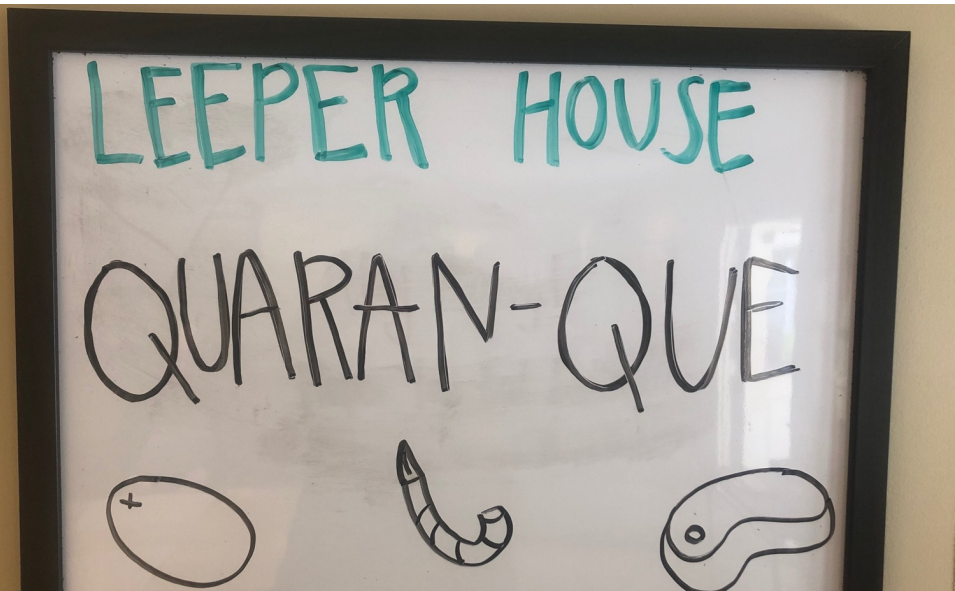 LEEPER HOUSE
QUARAN-QUE